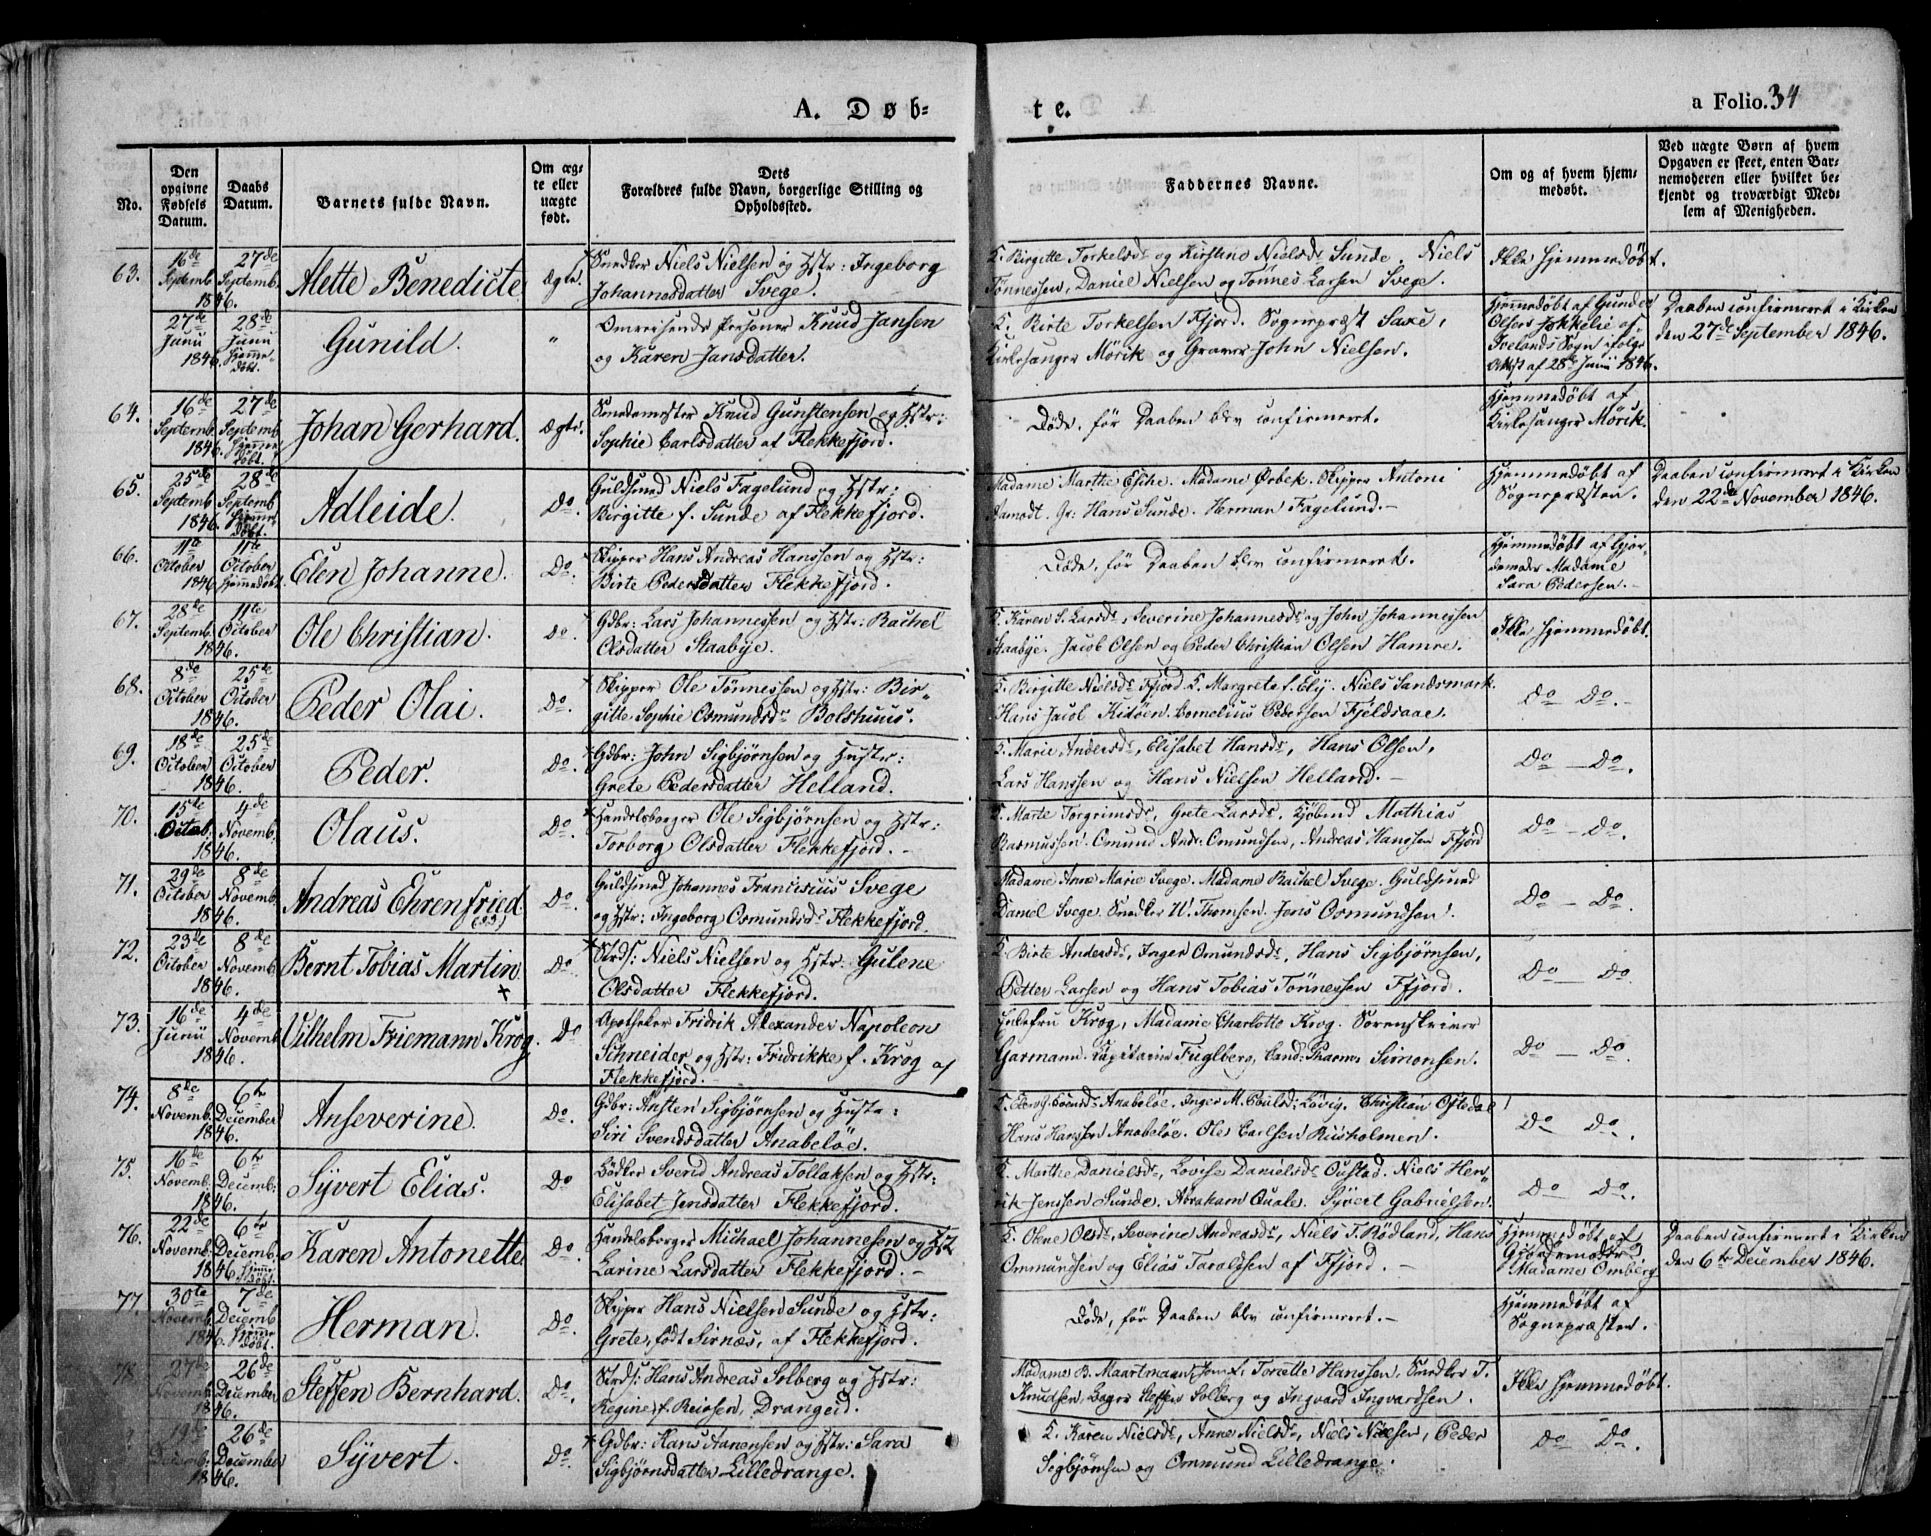 A. Døb=
te.
a Folio. 34
No.
Den opgivne Fødsels Datum.
Daabs Datum.
Barnets fulde Navn.
Om ægte eller uægte født.
Dets Forældres fulde Navn, borgerlige Stilling og Opholdssted.
Faddernes Navne.
Om og af hvem hjemmedøbt.
Ved uægte Børn af hvem Opgaven er skeet, enten Barnemoderen eller hvilket bekjendt og troværdigt Medlem af Menigheden.
63.
16de Septemb. 1846.
27de Septemb.
Alette Benedicte
ægte.
Snedker Niels Nielsen og Hstr: Ingeborg
Johannesdatter Svege.
K. Birgitte Torkelsd. og Kirstine Nielsd. Sunde. Niels
Tønnessen, Daniel Nielsen og Tønnes Larsen Svege.
Ikke hjemmedøbt.
27de Junii 1846.
28de Junii Hjemmedøbt.
Gunild.
"
Omreisende Personer Knud Jansen
og Karen Jansdatter.
K. Birte Torkelsen Ffjord. Sognepræst Saxe,
Kirkesanger Mörik og Graver John Nielsen.
Hjemmedøbt af Gunder
Olsen Jokkelie af
Ivelands Sogn ifølge
Attest af 28de Junii 1846.
Daaben confirmeret i Kirken
den 27de September 1846.
64.
16de Septembr. 1846.
27de Septemb. Hjemmedøbt.
Johan Gerhard.
ægte.
Smedemester Knud Gunstensen og Hstr:
Sophie Carlsdatter af Flekkefjord.
Døde, før Daaben blev confirmeret.
Hjemmedøbt af
Kirkesanger Mörik.
65.
25de Septemb. 1846.
28de Septemb. Hjemmedøbt.
Adleide.
Do.
Guldsmed Niels Fagelund og Hstr:
Birgitte f. Sunde af Flekkefjord.
Madame Marthe Esche. Madame Ørbek. Skipper Antoni
Aamodt. Gr: Hans Sunde. Herman Fagelund.
Hjemmedøbt af
Sognepræsten.
Daaben confirmeret i Kirken
den 22de November 1846.
66.
11te October 1846.
11te October Hjemmedøbt.
Elen Johanne.
Do.
Skipper Hans Andreas Hanssen og Hstr:
Birte Pedersdatter Flekkefjord.
Døde, før Daaben blev confirmeret.
Hjemmedøbt af Gjor-
demoder Madame
Sara Pedersen.
67.
28de Septemb. 1846.
11te October
Ole Christian.
Do.
Gdbr: Lars Johannessen og Hstr: Rachel
Olsdatter Staabye.
K. Karen S. Larsd., Severine Johannesd. og John Johannessen
Staabye. Jacob Olsen og Peder Christian Olsen Hamre.
Ikke hjemmedøbt.
68.
8de October 1846.
25de October
Peder Olai.
Do.
Skipper Ole Tönnessen og Hstr: Bir-
gitte Sophie Osmundsd. Bolshuus.
K. Birgitte Nielsd. Ffjord. K. Margrete f. Elij. Niels Sandsmark.
Hans Jacob Kidöen. Cornelius Pedersen Fjeldsaae.
Do Do.
69.
18de October 1846.
25de October
Peder.
Do.
Gdbr: John Sigbjörnsen og Hustr:
Grete Pedersdatter Helland.
K. Marie Andersd., Elisabet Hansd., Hans Olsen,
Lars Hanssen og Hans Nielsen Helland.
Do Do.
70.
15de Octob. 1846.
4de Novemb.
Olaus.
Do.
Handelsborger Ole Sigbjörnsen og Hstr:
Torborg Olsdatter Flekkefjord.
K. Marte Torgrimsd., Grete Larsd. Kjöbmd Mathias
Rasmussen. Omund Andr. Omundsen, Andreas Hanssen Ffjord
Do Do.
71.
29de October 1846.
8de Novemb.
Andreas Ehrenfried.
Do.
Guldsmed Johannes Franciscus Svege
og Hstr: Ingeborg Osmundsd. Flekkefjord.
Madame Anne Marie Svege. Madame Rachel Svege. Guldsmed
Daniel Svege. Snedker W. Thomsen. Jens Osmundsen.
Do Do.
72.
23de October 1846.
8de Novemb.
Bernt Tobias Martin.
Do.
Strds: Niels Nielsen og Hstr: Gulene
Olsdatter Flekkefjord.
K. Birte Andersd., Inger Omundsd., Hans Sigbjörnsen,
Petter Larsen og Hans Tobias Tönnessen Ffjord.
Do Do.
73.
16de Junii 1846.
4de Novemb.
Vilhelm Friemann Krog.
Do
Apotheker Fridrik Alexander Napoleon
Schneider og Hstr: Fridrikke f. Krog af
Flekkefjord.
Frøken Krog, Madame Charlotte Krog. Sorenskriver
Garmann. Capitaine Fuglberg, Cand: Pharm: Simonsen.
Do Do.
74.
8de Novemb. 1846.
6te December
Anseverine.
Do.
Gdbr: Austen Sigbjörnsen og Hustr:
Siri Svendsdatter Anabelöe.
Anabelöe. Inger M. Lövig. Christian Oftedal
Hans Hansen Anabelöe. Ole Carlsen Risholmen.
Do Do.
75.
16de Novemb. 1846.
6te Decemb:
Syvert Elias.
Do
Bödker Svend Andreas Tollaksen og Hstr:
Elisabet Jensdatter Flekkefjord.
K. Marthe Danielsd., Lovise Danielsd. Oustad. Niels Hen-
rik Jenssen Sunde. Abraham Quale. Syvert Gabrielsen.
Do Do.
76.
22de Novemb. 1846.
6te Decemb. Hjemmedøbt.
Karen Antonette
Do.
Handelsborger Michael Johannesen og Hst
Larine Larsdatter Flekkefjord.
K. Olene Olsd., Severine Andreasd., Niels T. Rödland, Hans
Ommundsen og Elias Taraldsen af Ffjord.
Hjemmedøbt af
Gjordemoder
Madame Omberg
Daaben confirmeret i Kirken
den 6te December 1846.
77.
30te Novemb. 1846.
7de Decemb Hjemmedøbt.
Herman.
Do.
Skipper Hans Nielsen Sunde og Hstr:
Grete, født Sirnæs, af Flekkefjord.
Døde, før Daaben blev confirmeret.
Hjemmedøbt af
Sognepræsten.
78.
27de Novemb. 1846.
26de December
Steffen Bernhard.
Do.
Strds: Hans Andreas Solberg og Hstr:
Regine f. Reiersen, Drangeid.
Madame B. Maartmann, Torcette Hanssen, Snedker T.
Knudsen, Bager Steffen Solberg og Ingvard Ingvardsen.
Ikke hjemmedøbt.
19de Decemb: 1846.
26de December
Syvert.
Do.
Gdbr: Hans Aanensen og Hstr: Sara
Sigbjörnsdatter Lilledrange.
K. Karen Nielsd., Anne Nielsd., Niels Nielsen, Peder
Sigbjörnsen og Ommund Lilledrange.
Do Do.